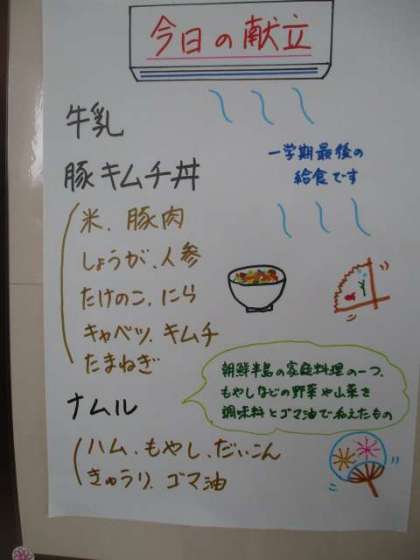 今日の献立
牛乳
一学期最後の
給食です
豚キムチ丼
米、豚肉
しょうが、人参
たけのこ、にら
キャベツ、キムチ
たまねぎ
朝鮮半島の家庭料理の一つ、
もやしなどの野菜や山菜を
調味料とゴマ油で和えたもの
ナムル
ハム、もやし、だいこん
きゅうり、ゴマ油